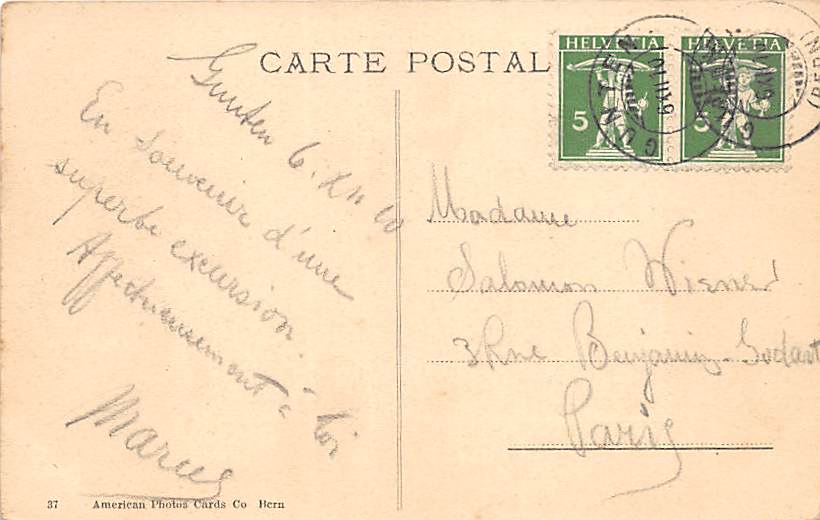 CARTE POSTALE
HELVETIA
5
HELVETIA
5
GUNTEN
Gunten 6.
En Souvenir d'une
superbe excursion.
Affectueusement à toi
Marcel
Madame
Salomon Wiener
3 Rue Benjamin-Godart
Paris
37 American Photos Cards Co Bern